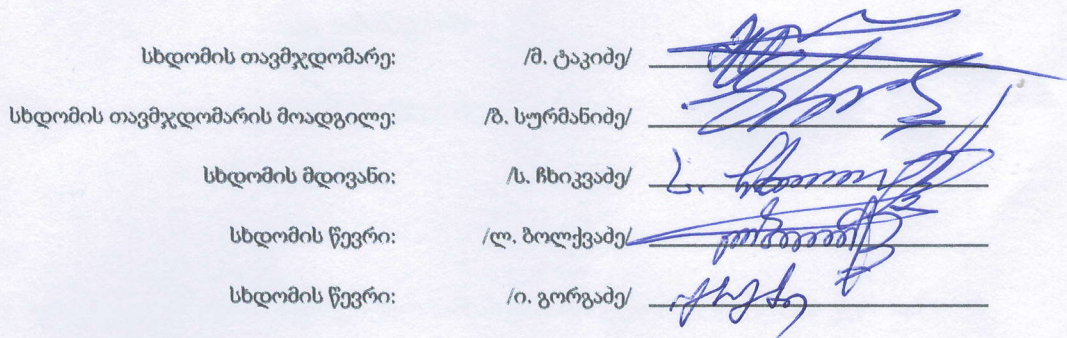 სხდომის თავმჯდომარე: /მ. ტაკიძე/
სხდომის თავმჯდომარის მოადგილე: /ზ. სურმანიძე/
სხდომის მდივანი: /ს. ჩხიკვაძე/
სხდომის წევრი: /ლ. ბოლქვაძე/
სხდომის წევრი: /ი. გორგაძე/